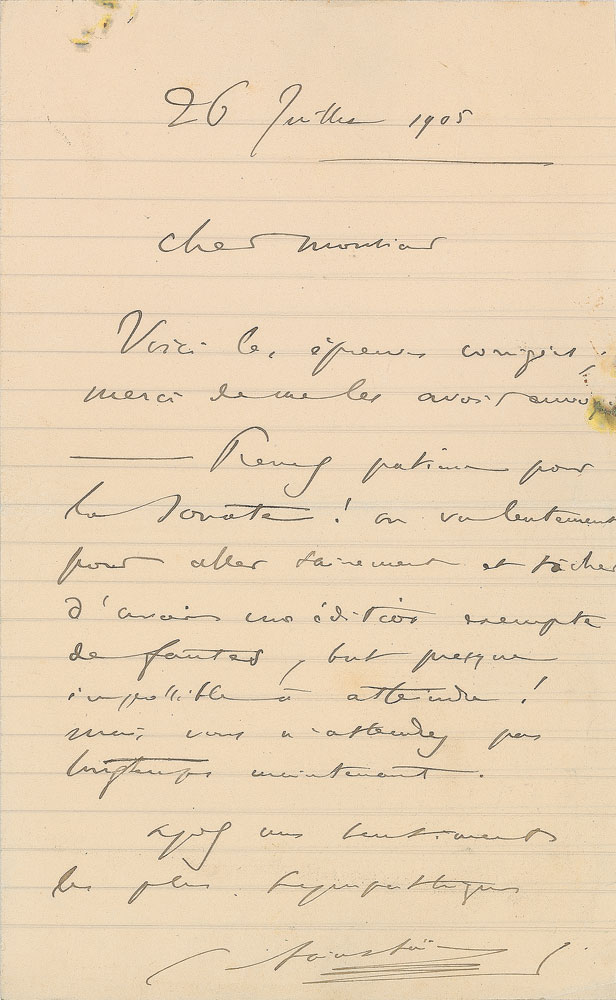 26 Juillet 1905
Cher Monsieur
Voici les épreuves corrigées,
merci de me les avoir envoy
Prenez patience pour
la Sonate ! on va lentement
pour aller sainement et tâcher
d'avoir une édition exempte
de fautes, but presque
impossible à atteindre !
mais vous n'attendrez pas
longtemps maintenant.
sentiments
les plus sympathiques